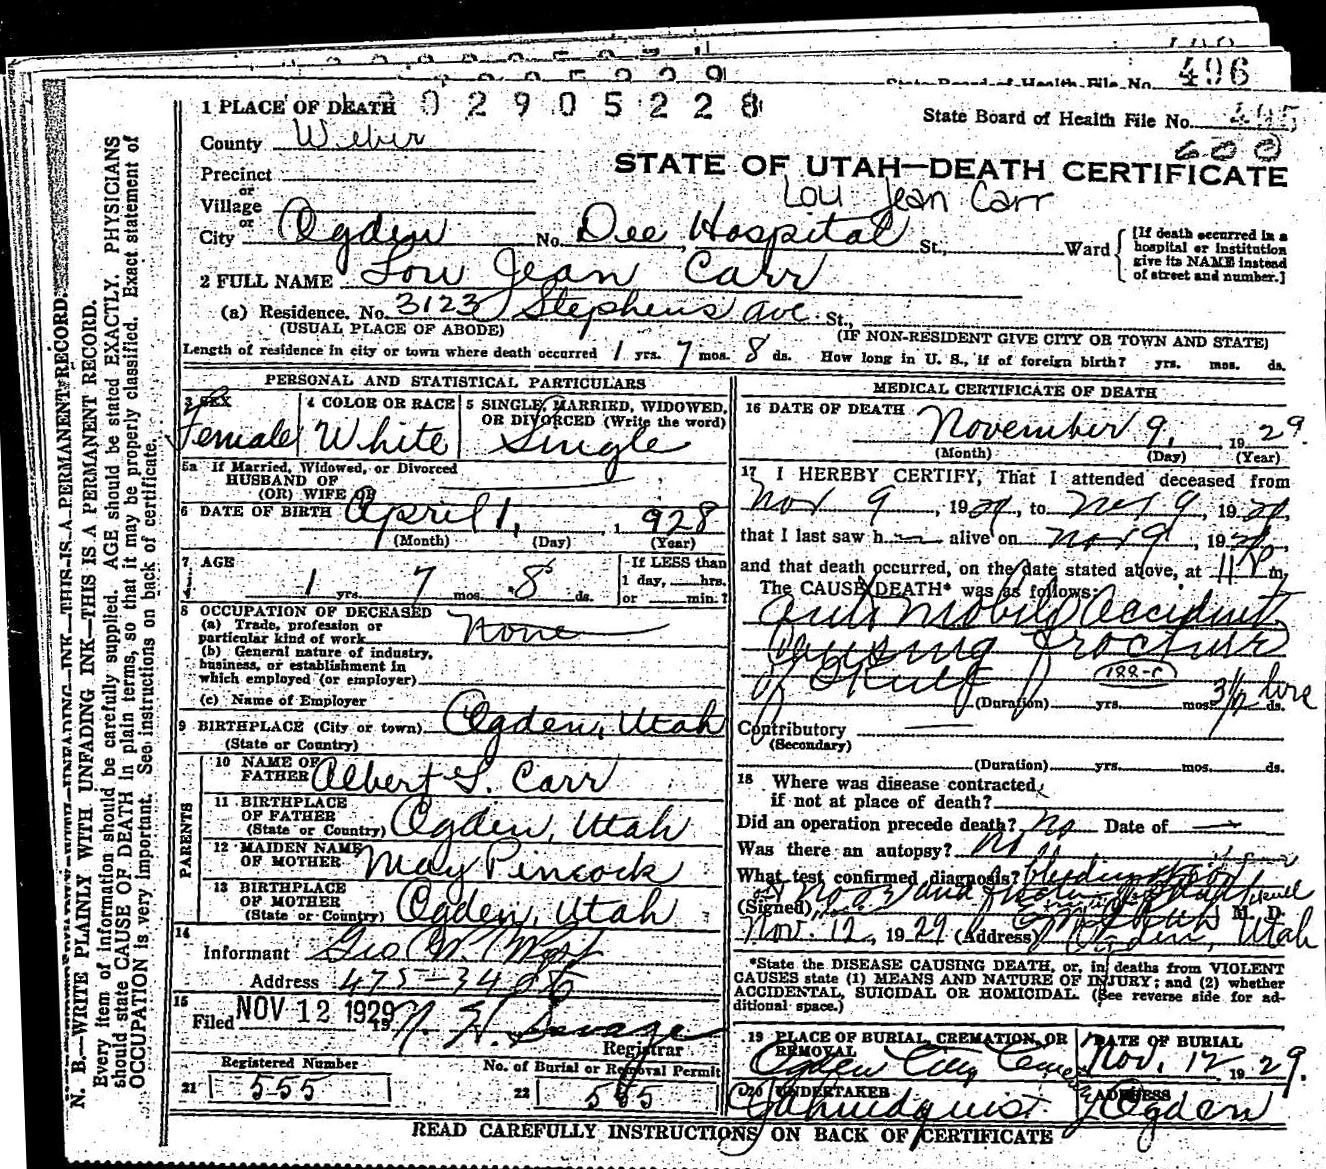 496
State Board of Health File No.
1 PLACE OF DEATH
02905228
State Board of Health File No. 495
600
County Weber
STATE OF UTAH—DEATH CERTIFICATE
Precinct
or
Village
Lou Jean Carr
or
City Ogden No. Dee Hospital St., Ward
[If death occurred in a hospital or institution give its NAME instead of street and number.]
2 FULL NAME Lou Jean Carr
(a) Residence. No. 3123 Stephens ave. St.,
(USUAL PLACE OF ABODE) (IF NON-RESIDENT GIVE CITY OR TOWN AND STATE)
Length of residence in city or town where death occurred 1 yrs. 7 mos. 8 ds. How long in U. S., if of foreign birth? yrs. mos. ds.
PERSONAL AND STATISTICAL PARTICULARS
3 SEX
Female
4 COLOR OR RACE
White
5 SINGLE, MARRIED, WIDOWED,
OR DIVORCED (Write the word)
Single
5a If Married, Widowed, or Divorced
HUSBAND OF
(OR) WIFE OF
6 DATE OF BIRTH April 1, 1928
(Month) (Day) (Year)
7 AGE
1 yrs. 7 mos. 8 ds.
If LESS than
1 day, hrs.
or min.?
8 OCCUPATION OF DECEASED
(a) Trade, profession or
particular kind of work None
(b) General nature of industry,
business, or establishment in
which employed (or employer)
(c) Name of Employer
9 BIRTHPLACE (City or town) Ogden, Utah
(State or Country)
PARENTS
10 NAME OF
FATHER Albert S. Carr
11 BIRTHPLACE
OF FATHER
(State or Country) Ogden, Utah
12 MAIDEN NAME
OF MOTHER May Pincock
13 BIRTHPLACE
OF MOTHER
(State or Country) Ogden, Utah
14
Informant Geo W. West
Address 475—34
15
Filed NOV 12 1929 19
Savage
Registrar
Registered Number
21 555
No. of Burial or Removal Permit
22 555
MEDICAL CERTIFICATE OF DEATH
16 DATE OF DEATH
November 9, 1929.
(Month) (Day) (Year)
17 I HEREBY CERTIFY, That I attended deceased from
Nov 9, 1929, to Nov 9, 1929,
that I last saw h alive on Nov 9, 1929,
and that death occurred, on the date stated above, at 11 P m.
The CAUSE OF DEATH* was as follows:
Automobile Accident
Causing Fracture
of Skull
188-c
(Duration) yrs. mos. 3 1/2 hrs ds.
Contributory
(Secondary)
(Duration) yrs. mos. ds.
18 Where was disease contracted,
if not at place of death?
Did an operation precede death? No Date of —
Was there an autopsy? No
What test confirmed diagnosis? bleeding from
(Signed) M. D.
Nov. 12, 1929 (Address) Ogden, Utah
*State the DISEASE CAUSING DEATH, or, in deaths from VIOLENT
CAUSES state (1) MEANS AND NATURE OF INJURY; and (2) whether
ACCIDENTAL, SUICIDAL OR HOMICIDAL. (See reverse side for ad-
ditional space.)
19 PLACE OF BURIAL, CREMATION, OR
REMOVAL
Ogden City Cemetery
DATE OF BURIAL
Nov. 12 1929.
20 UNDERTAKER
Lindquist
ADDRESS
Ogden
READ CAREFULLY INSTRUCTIONS ON BACK OF CERTIFICATE
N. B.—WRITE PLAINLY WITH UNFADING INK—THIS IS A PERMANENT RECORD.
Every item of information should be carefully supplied. AGE should be stated EXACTLY. PHYSICIANS
should state CAUSE OF DEATH in plain terms, so that it may be properly classified. Exact statement of
OCCUPATION is very important. See instructions on back of certificate.